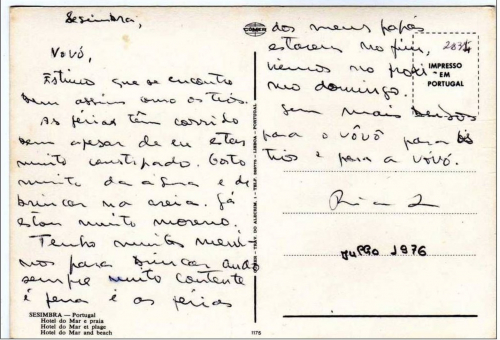 Sesimbra,
Vovó,
Estimo que se encontre
bem assim como os tios.
As férias têm corrido
bem apesar de eu estar
muito constipado. Gosto
muito da água e de
brincar na areia. Já
estou muito moreno.
Tenho muitos meni-
nos para brincar ando
sempre muito contente
é pena é as férias
SESIMBRA — Portugal
Hotel do Mar e praia
Hotel do Mar et plage
Hotel do Mar and beach
1175
COMER
LISBOA - PORTUGAL
dos meus papás
estarem no fim,
viemos no próxi
mo domingo.
Sem mais beijos
para o vôvô para os
tios e para a vovó.
IMPRESSO
EM
PORTUGAL
Julho 1976